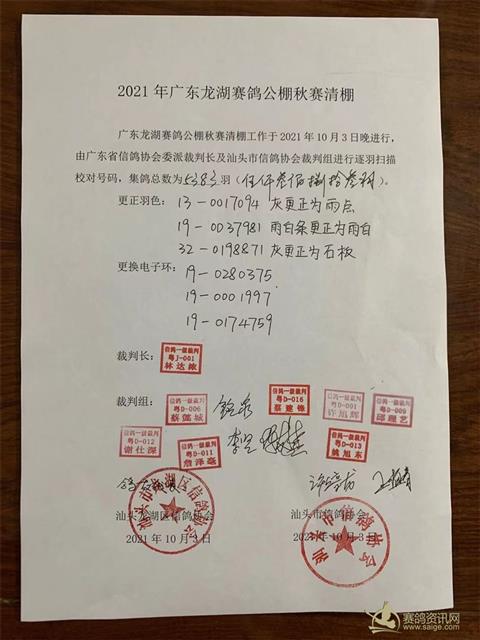 2021年广东龙湖赛鸽公棚秋赛清棚
广东龙湖赛鸽公棚秋赛清棚工作于2021年10月3日晚进行,
由广东省信鸽协会委派裁判长及汕头市信鸽协会裁判组进行逐羽扫描
校对号码,集鸽总数为5383羽(伍仟叁佰捌拾叁羽)。
更正羽色:13-0017094 灰更正为雨点
19-0037981 雨白条更正为雨白
32-0198871 灰更正为石板
更换电子环:19-0280375
19-0001997
19-0174759
裁判长:
信鸽一级裁判
粤J-001
林达浓
裁判组:
信鸽一级裁判
粤D-006
蔡懿城
信鸽一级裁判
粤D-016
蔡建锋
信鸽一级裁判
粤D-001
许旭辉
信鸽一级裁判
粤D-009
邱理艺
信鸽一级裁判
粤D-012
谢仕深
信鸽一级裁判
粤D-011
詹泽亮
信鸽一级裁判
粤D-013
姚旭东
汕头龙湖区信鸽协会
汕头市信鸽协会
2021年10月3日
2021年10月3日
汕头市龙湖区信鸽协会
汕头市信鸽协会
赛鸽资讯网
www.saige.com